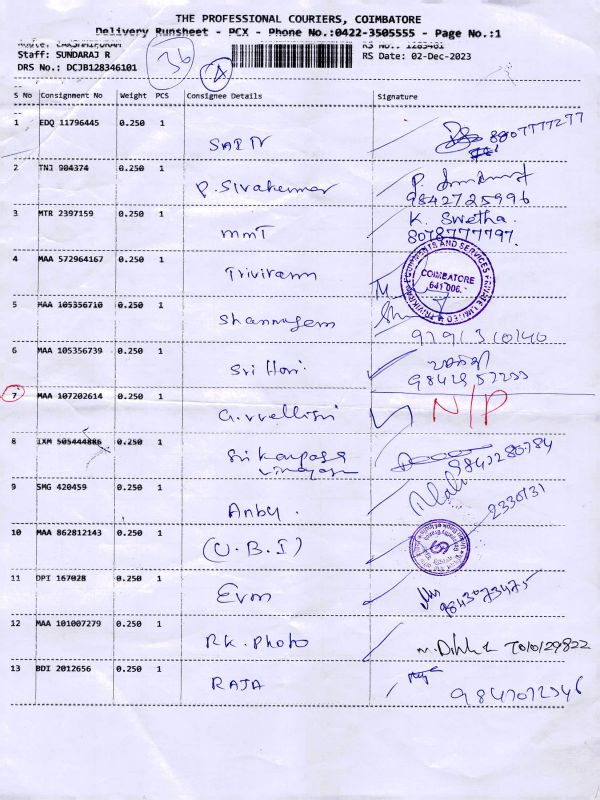 THE PROFESSIONAL COURIERS, COIMBATORE
Delivery Runsheet - PCX - Phone No.:0422-3505555 - Page No.:1
Route: LAKSHMIPURAM RS No.: 1283461
Staff: SUNDARAJ R RS Date: 02-Dec-2023
DRS No.: DCJB128346101
36
4
S No Consignment No Weight PCS Consignee Details Signature
1 EDQ 11796445 0.250 1
8807777277
2 TNJ 904374 0.250 1
P. Sivakumar P.
9842725996
3 MTR 2397159 0.250 1 K. Swetha.
MMT 8078777797.
4 MAA 572964167 0.250 1
COIMBATORE
641 006.
5 MAA 105356710 0.250 1
Shanmugam
9791310140
6 MAA 105356739 0.250 1
Sri Hari
7 MAA 107202614 0.250 1 N/P
8 IXM 505444886 0.250 1
Sri Karpaga
Vinayaga
9842280784
9 SMG 420459 0.250 1
Anbu. 2330131
10 MAA 862812143 0.250 1
(U.B.I)
11 DPI 167028 0.250 1
9843073475
12 MAA 101007279 0.250 1
RK. Photo 7010129822
13 BDI 2012656 0.250 1
RAJA 9847072346